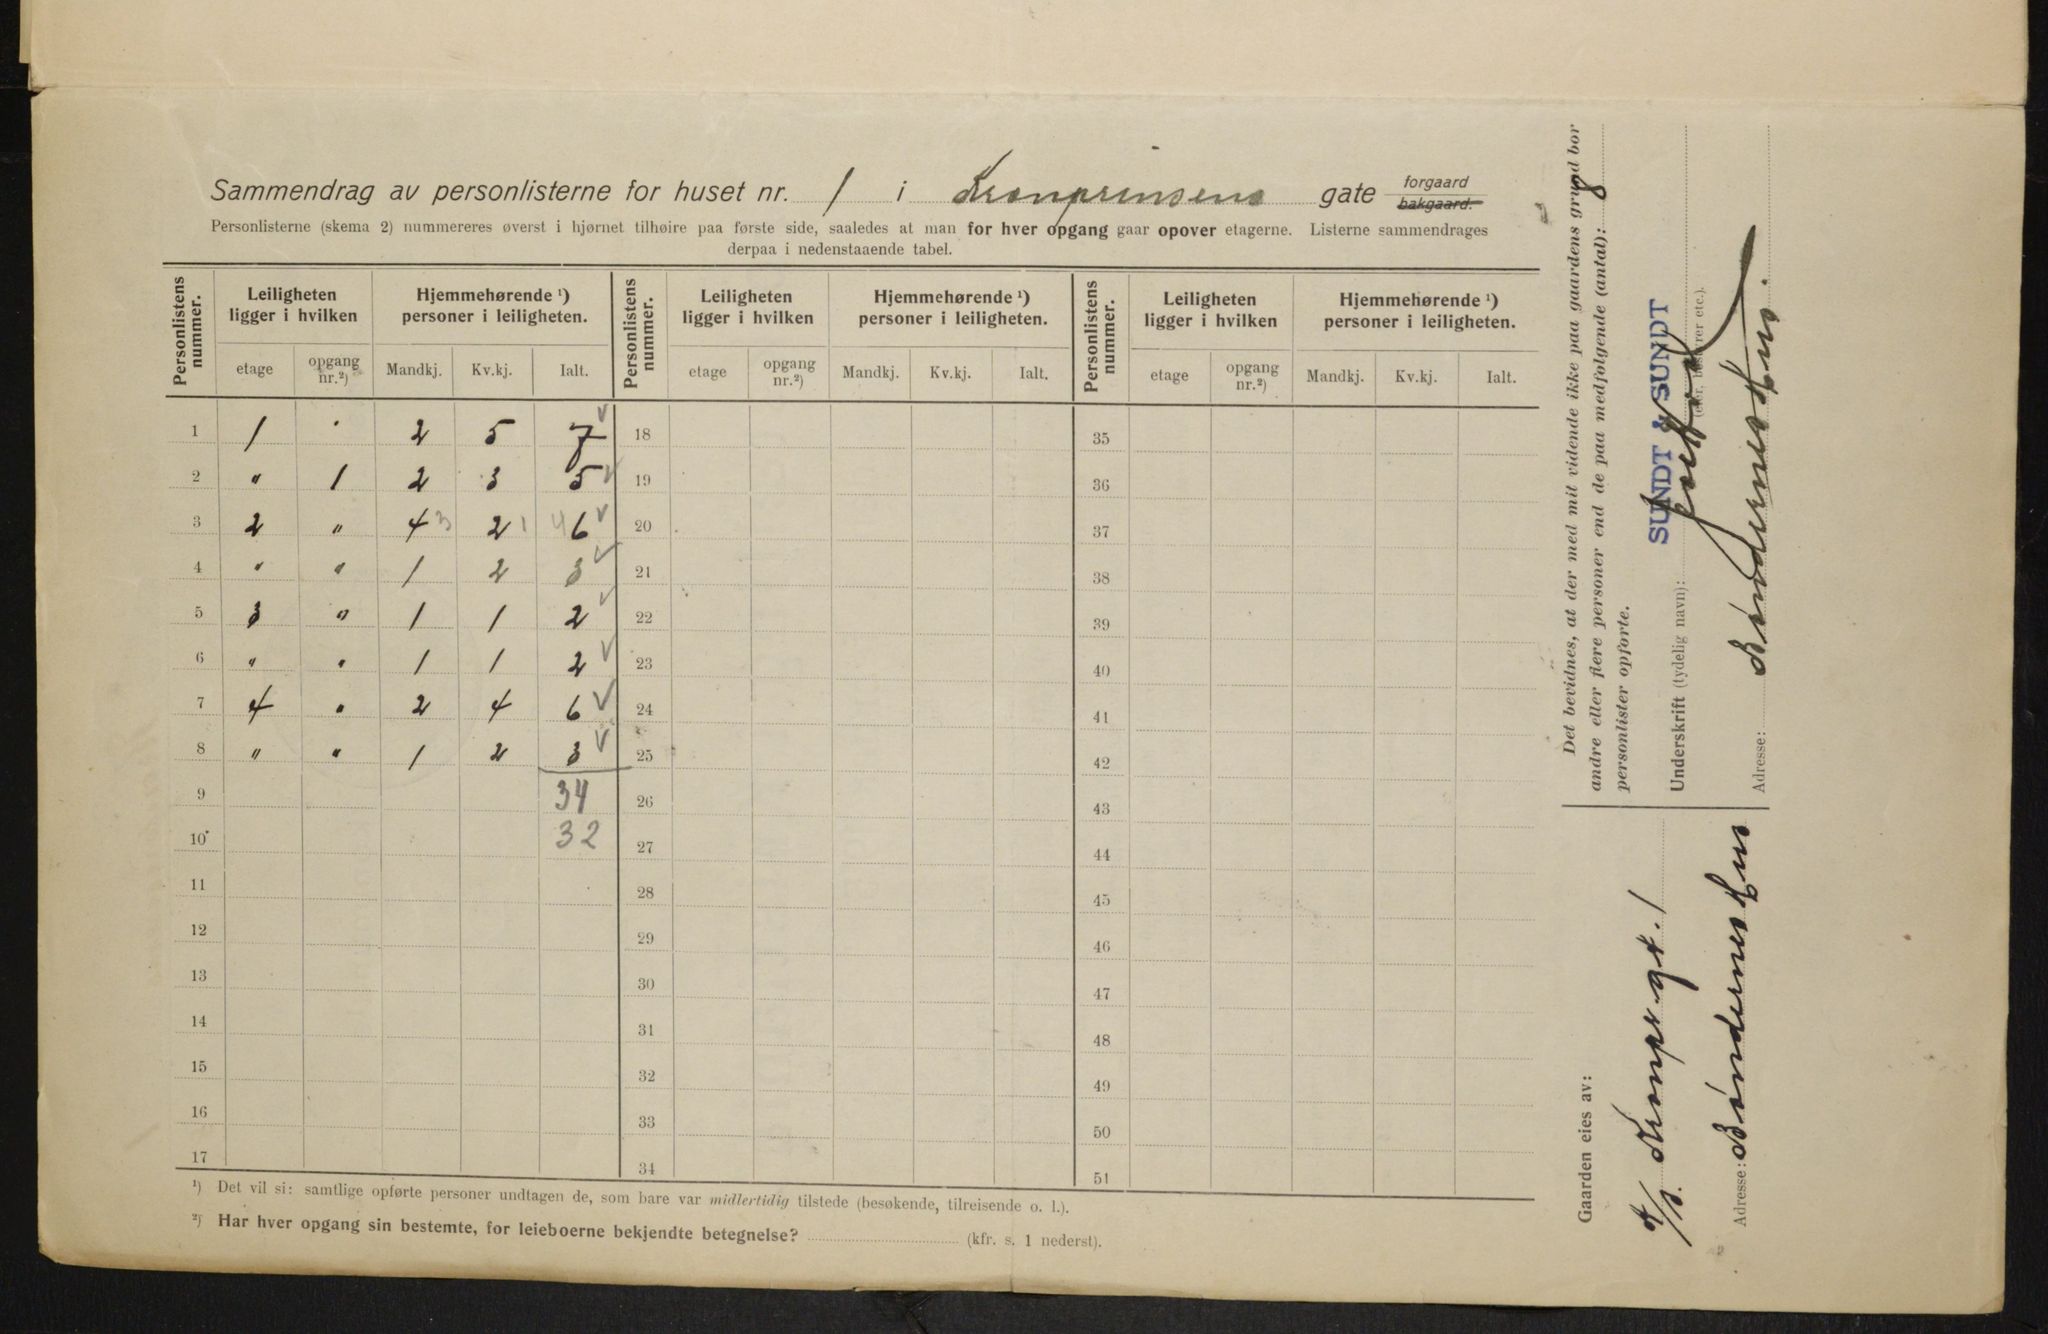 Sammendrag av personlisterne for huset nr. 1 i Kronprinsens gate forgaard bakgaard.
Personlisterne (skema 2) nummereres øverst i hjørnet tilhøire paa første side, saaledes at man for hver opgang gaar opover etagerne. Listerne sammendrages
derpaa i nedenstaaende tabel.
Personlistens nummer. Leiligheten ligger i hvilken Hjemmehørende ¹) personer i leiligheten. Personlistens nummer. Leiligheten ligger i hvilken Hjemmehørende ¹) personer i leiligheten. Personlistens nummer. Leiligheten ligger i hvilken Hjemmehørende ¹) personer i leiligheten.
etage opgang nr.²) Mandkj. Kv.kj. Ialt. etage opgang nr.²) Mandkj. Kv.kj. Ialt. etage opgang nr.²) Mandkj. Kv.kj. Ialt.
1 1 " 2 5 7 18 35
2 " 1 2 3 5 19 36
3 2 " 4 3 2 1 4 6 20 37
4 " " 1 2 3 21 38
5 3 " 1 1 2 22 39
6 " " 1 1 2 23 40
7 4 " 2 4 6 24 41
8 " " 1 2 3 25 42
9 34 26 43
10 32 27 44
11 28 45
12 29 46
13 30 47
14 31 48
15 32 49
16 33 50
17 34 51
¹) Det vil si: samtlige opførte personer undtagen de, som bare var midlertidig tilstede (besøkende, tilreisende o. l.).
²) Har hver opgang sin bestemte, for leieboerne bekjendte betegnelse? (kfr. s. 1 nederst).
Det bevidnes, at der med mit vidende ikke paa gaardens grund bor
andre eller flere personer end de paa medfølgende (antal): 8
personlister opførte.
SUNDT & SUNDT
Underskrift (tydelig navn):
(eier, bestyrer etc.).
Adresse: Bøndernes Hus.
Gaarden eies av:
A/S. Kronpr.gt. 1
Adresse: Bøndernes Hus